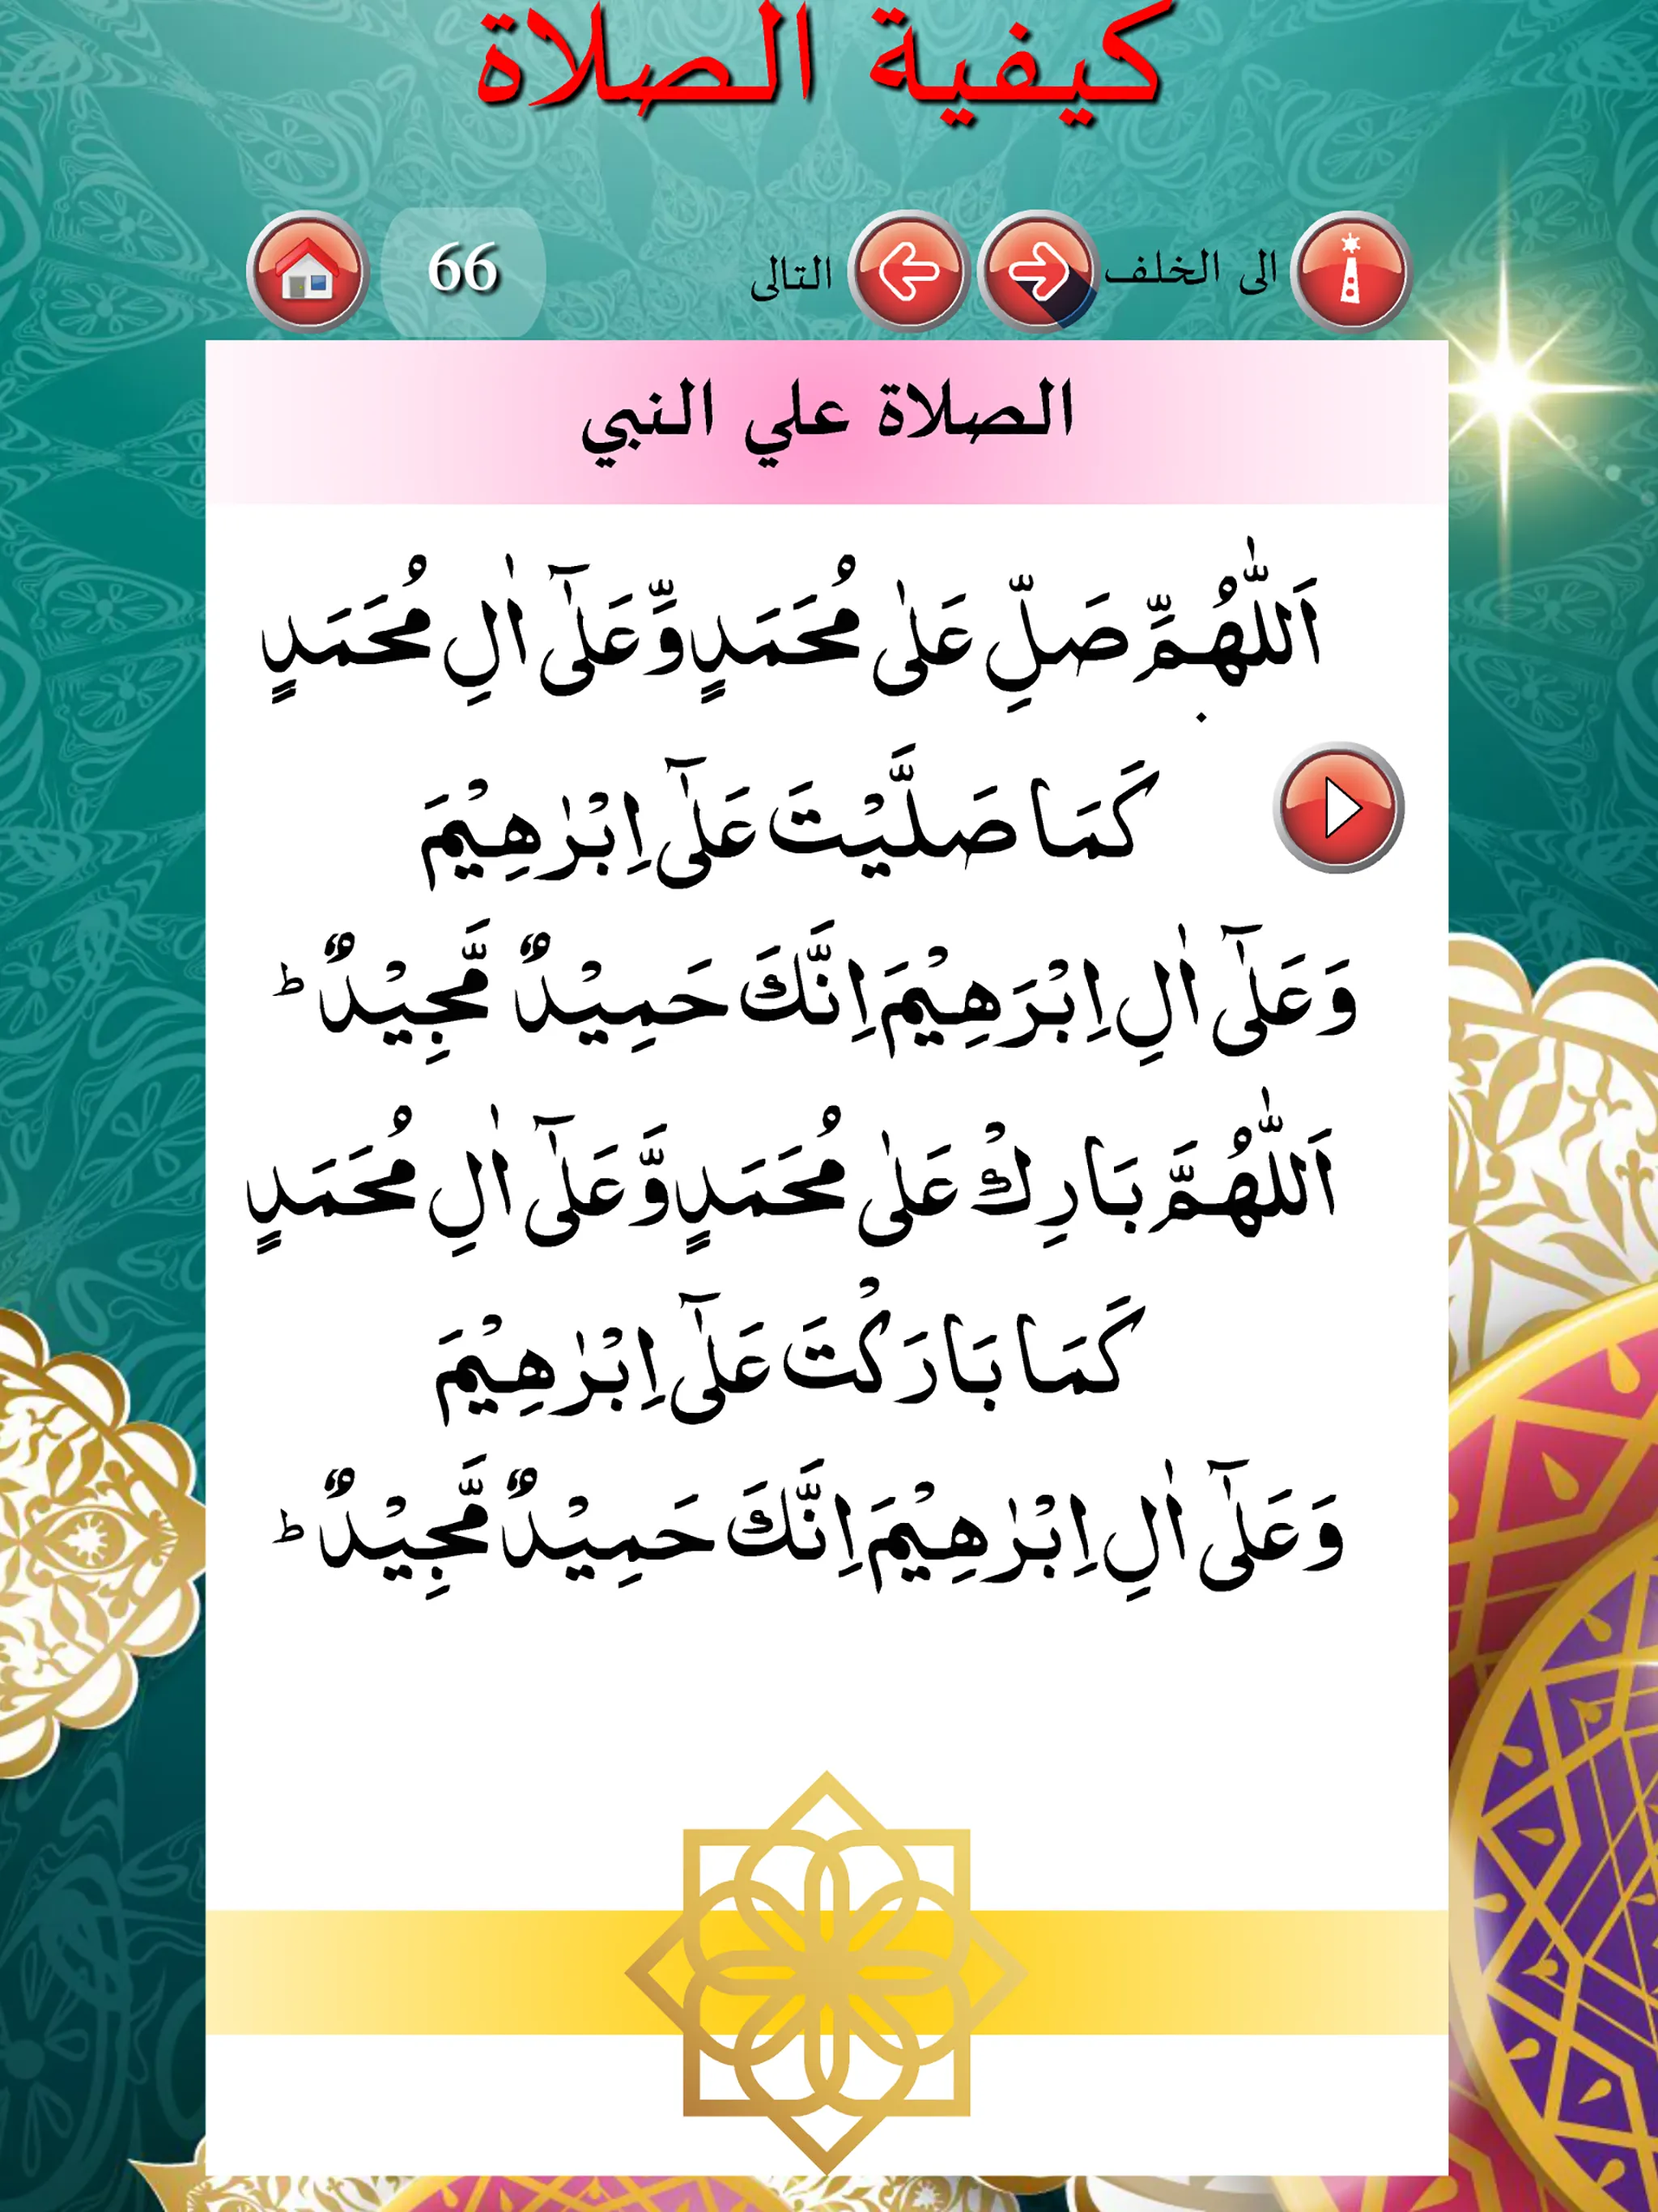 كيفية الصلاة
الى الخلف
التالى
66
الصلاة علي النبي
اَللّٰهُمِّ صَلِّ عَلٰى مُحَمَدٍ وَِّعَلٰٓى اٰلِ مُحَمَدٍ
كَمَا صَلَّيْتَ عَلٰٓى اِبْرٰهِيْمَ
وَعَلٰٓى اٰلِ اِبْرَهِيْمَ اِنَّكَ حَمِيْدٌ مَّجِيْدٌ ؕ
اَللّٰهُمَّ بَارِكْ عَلٰى مُحَمَدٍ وَّعَلٰٓى اٰلِ مُحَمَدٍ
كَمَا بَارَكْتَ عَلٰٓى اِبْرٰهِيْمَ
وَعَلٰٓى اٰلِ اِبْرٰهِيْمَ اِنَّكَ حَمِيْدٌ مَّجِيْدٌ ؕ